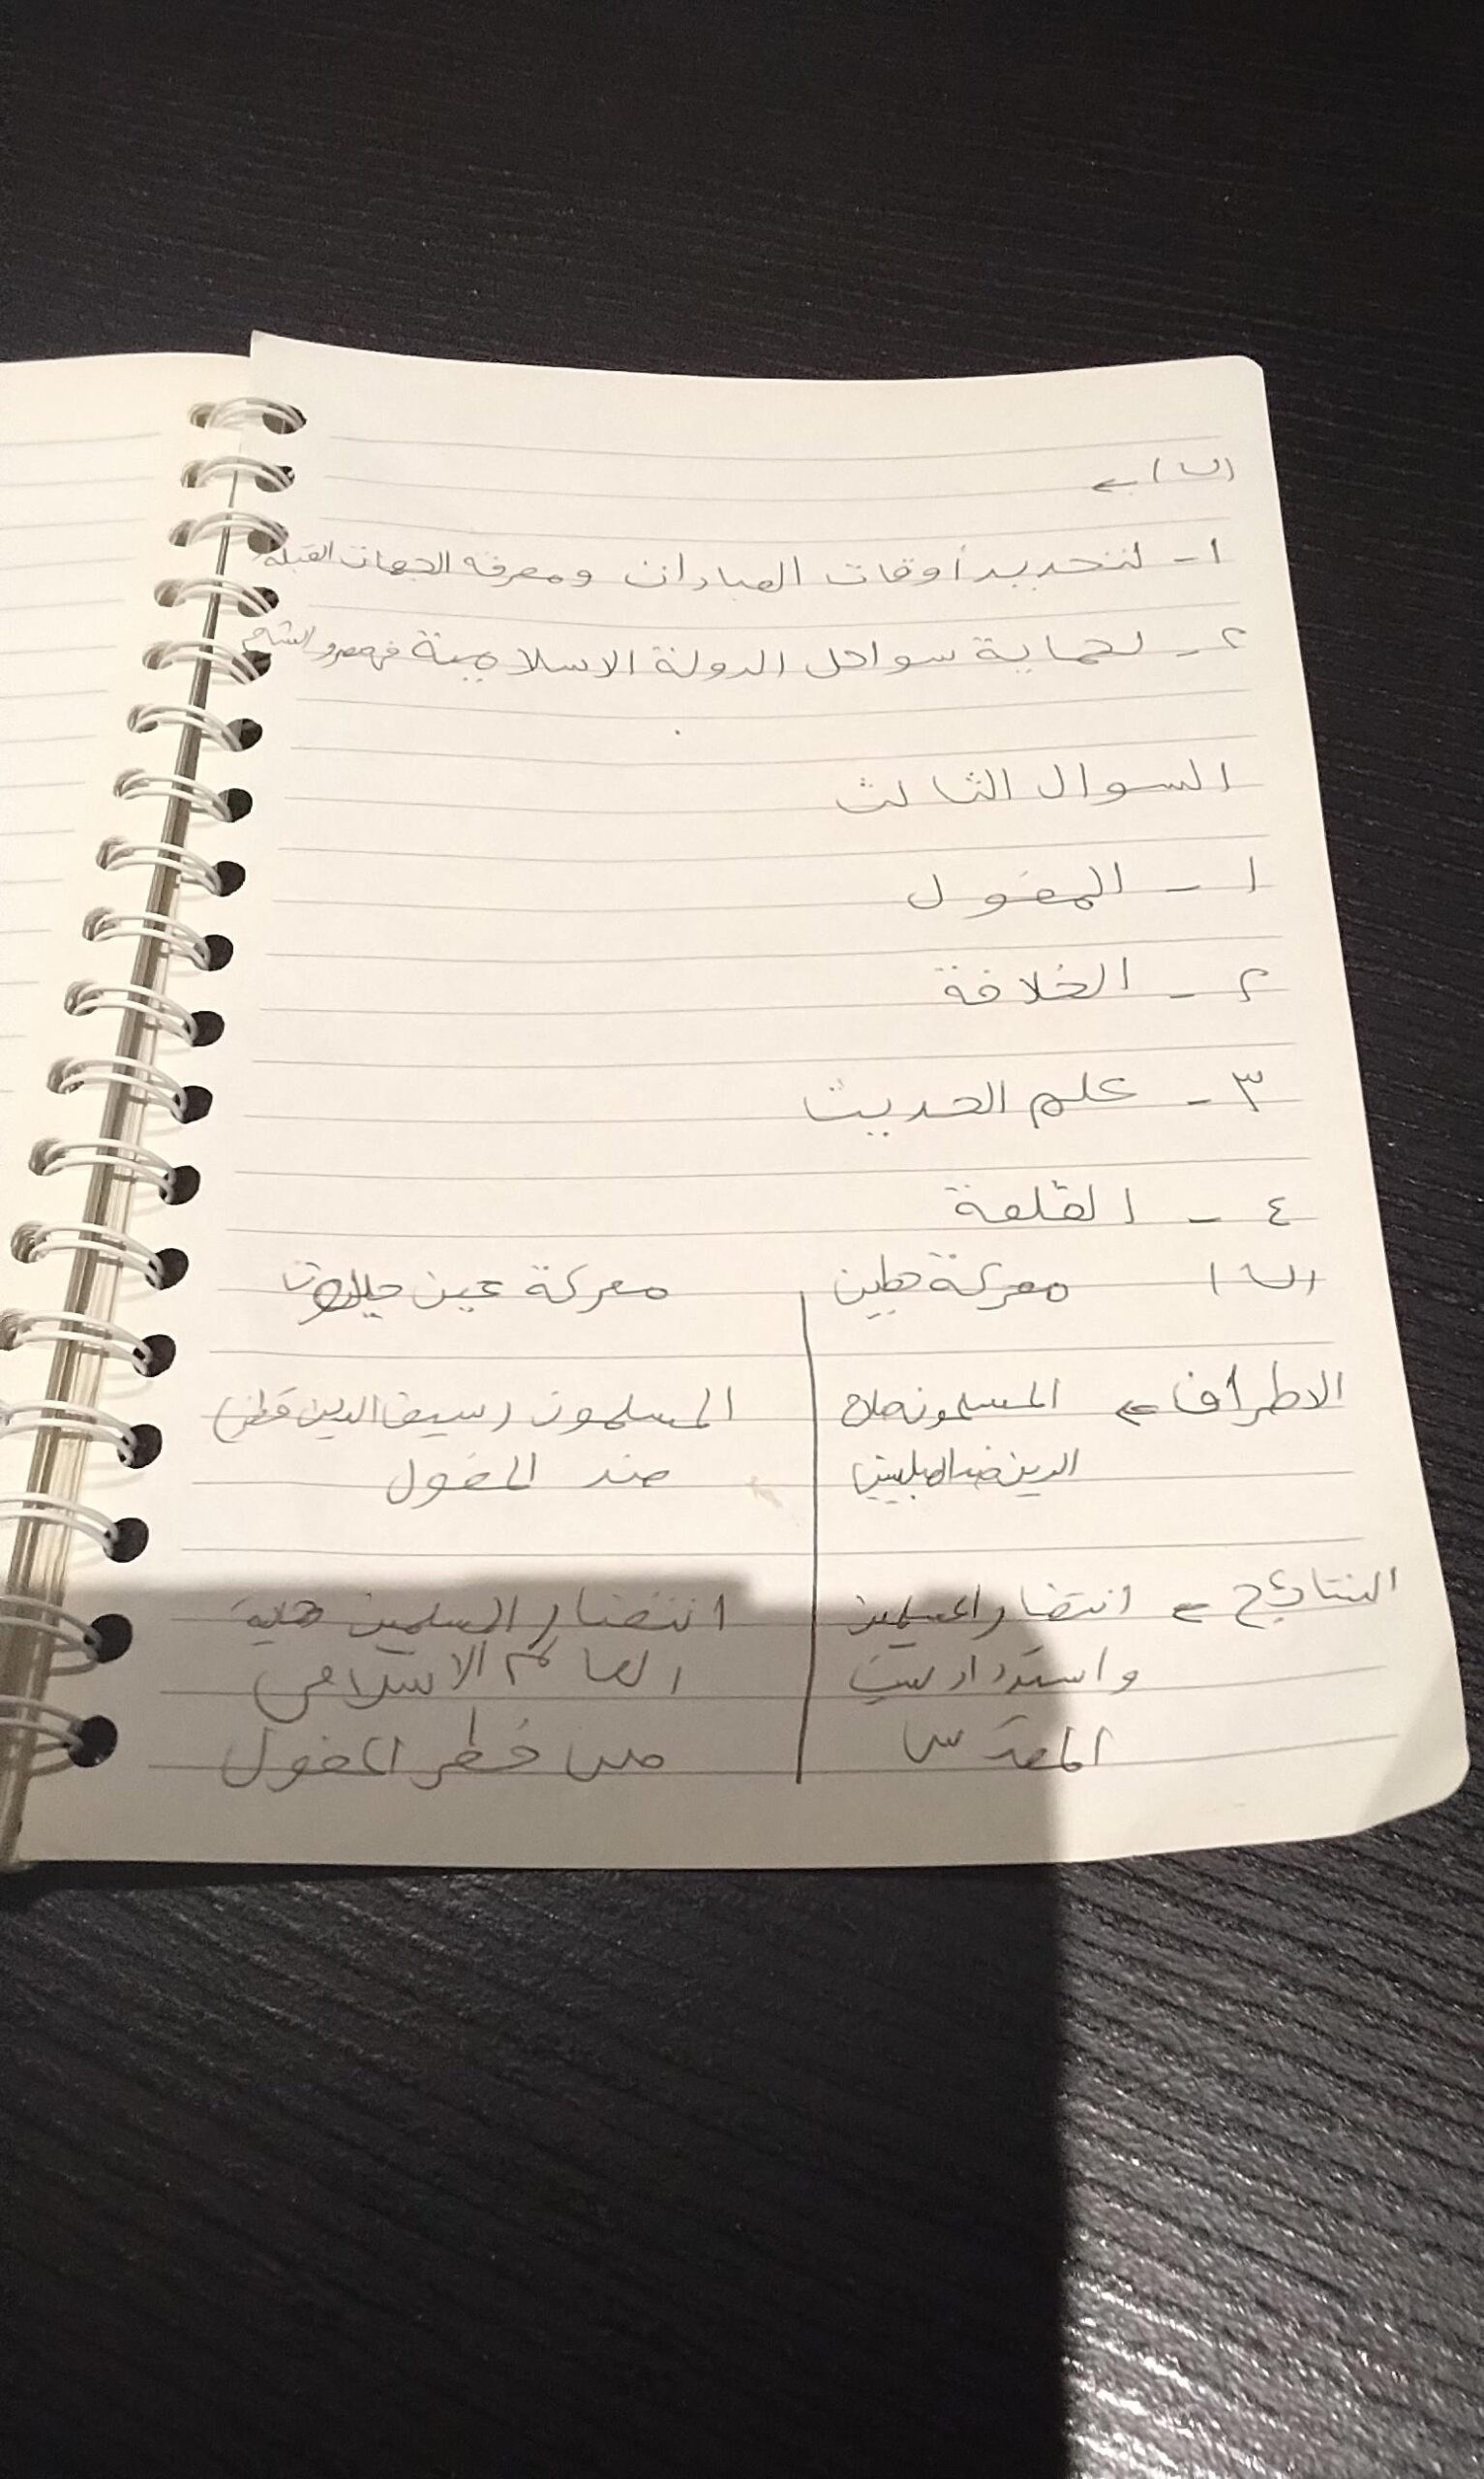 (ب) ←
١- لتحديد أوقات العبادات ومعرفة الجهات القبلة
٢- لحماية سواحل الدولة الاسلامية في مصر والشام
السوال الثالث
١- المغول
٢- الخلافة
٣- علم الحديث
٤- القلعة
(ب) معركة حطين معركة عين جالوت
الاطراف ← المسلمون صلاح المسلمون (سيف الدين قطز)
الدين ضد الصليبين ضد المغول
النتائج = انتصار المسلمين انتصار المسلمين
واسترداد بيت العالم الاسلامي
المقدس من خطر المغول